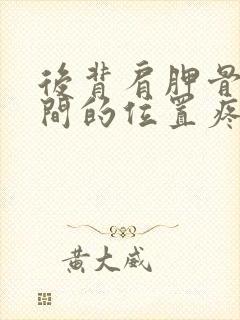 後背肩胛骨
間的位置疼
黃大威